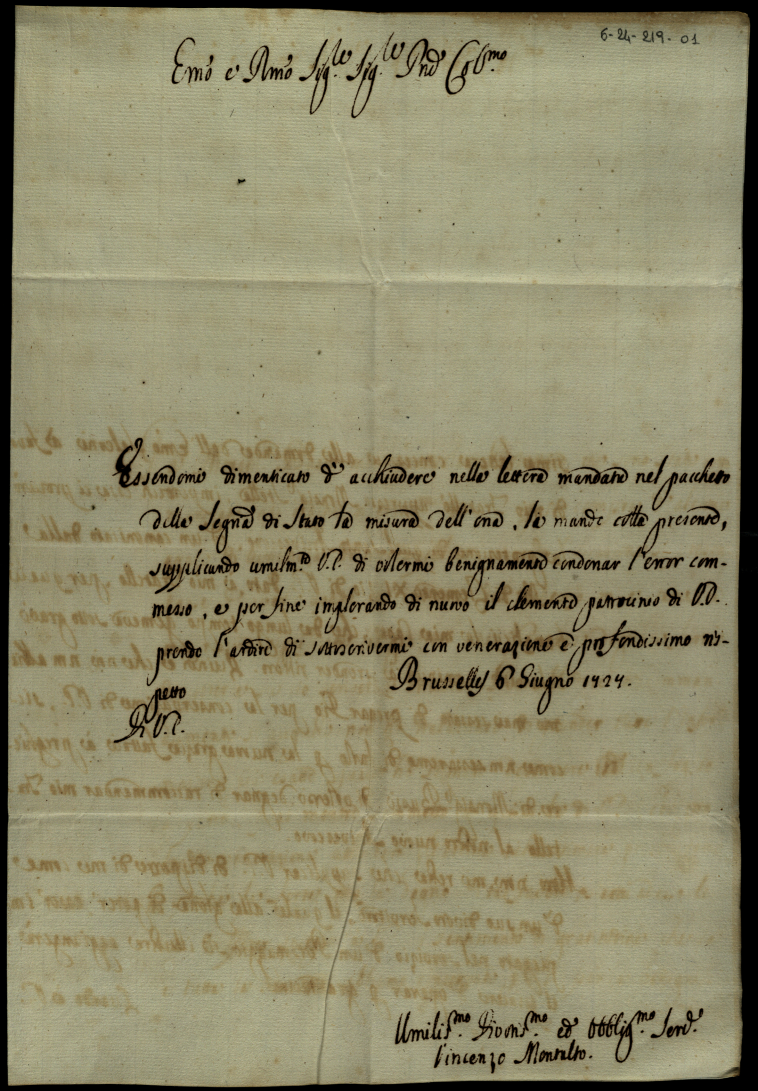 6-24-219-01
Emo e Rmo Sigre Sigre Pne Colmo
Essendomi dimenticato d'acchiudere nella lettera mandata nel pacchetto
della Segria di Stato la misura dell'ona, la mando colla presente,
supplicando umilmte V.E. di volermi benignamente condonar l'error com-
messo, e per fine implorando di nuovo il clemente patrocinio di V.E.
prendo l'ardire di sottoscrivermi con venerazione e profondissimo ris-
petto
Brusselles 6 Giugno 1727.
Di V.E.
Umilismo Divotismo ed Obbligmo Serve
Vincenzo Montalto.